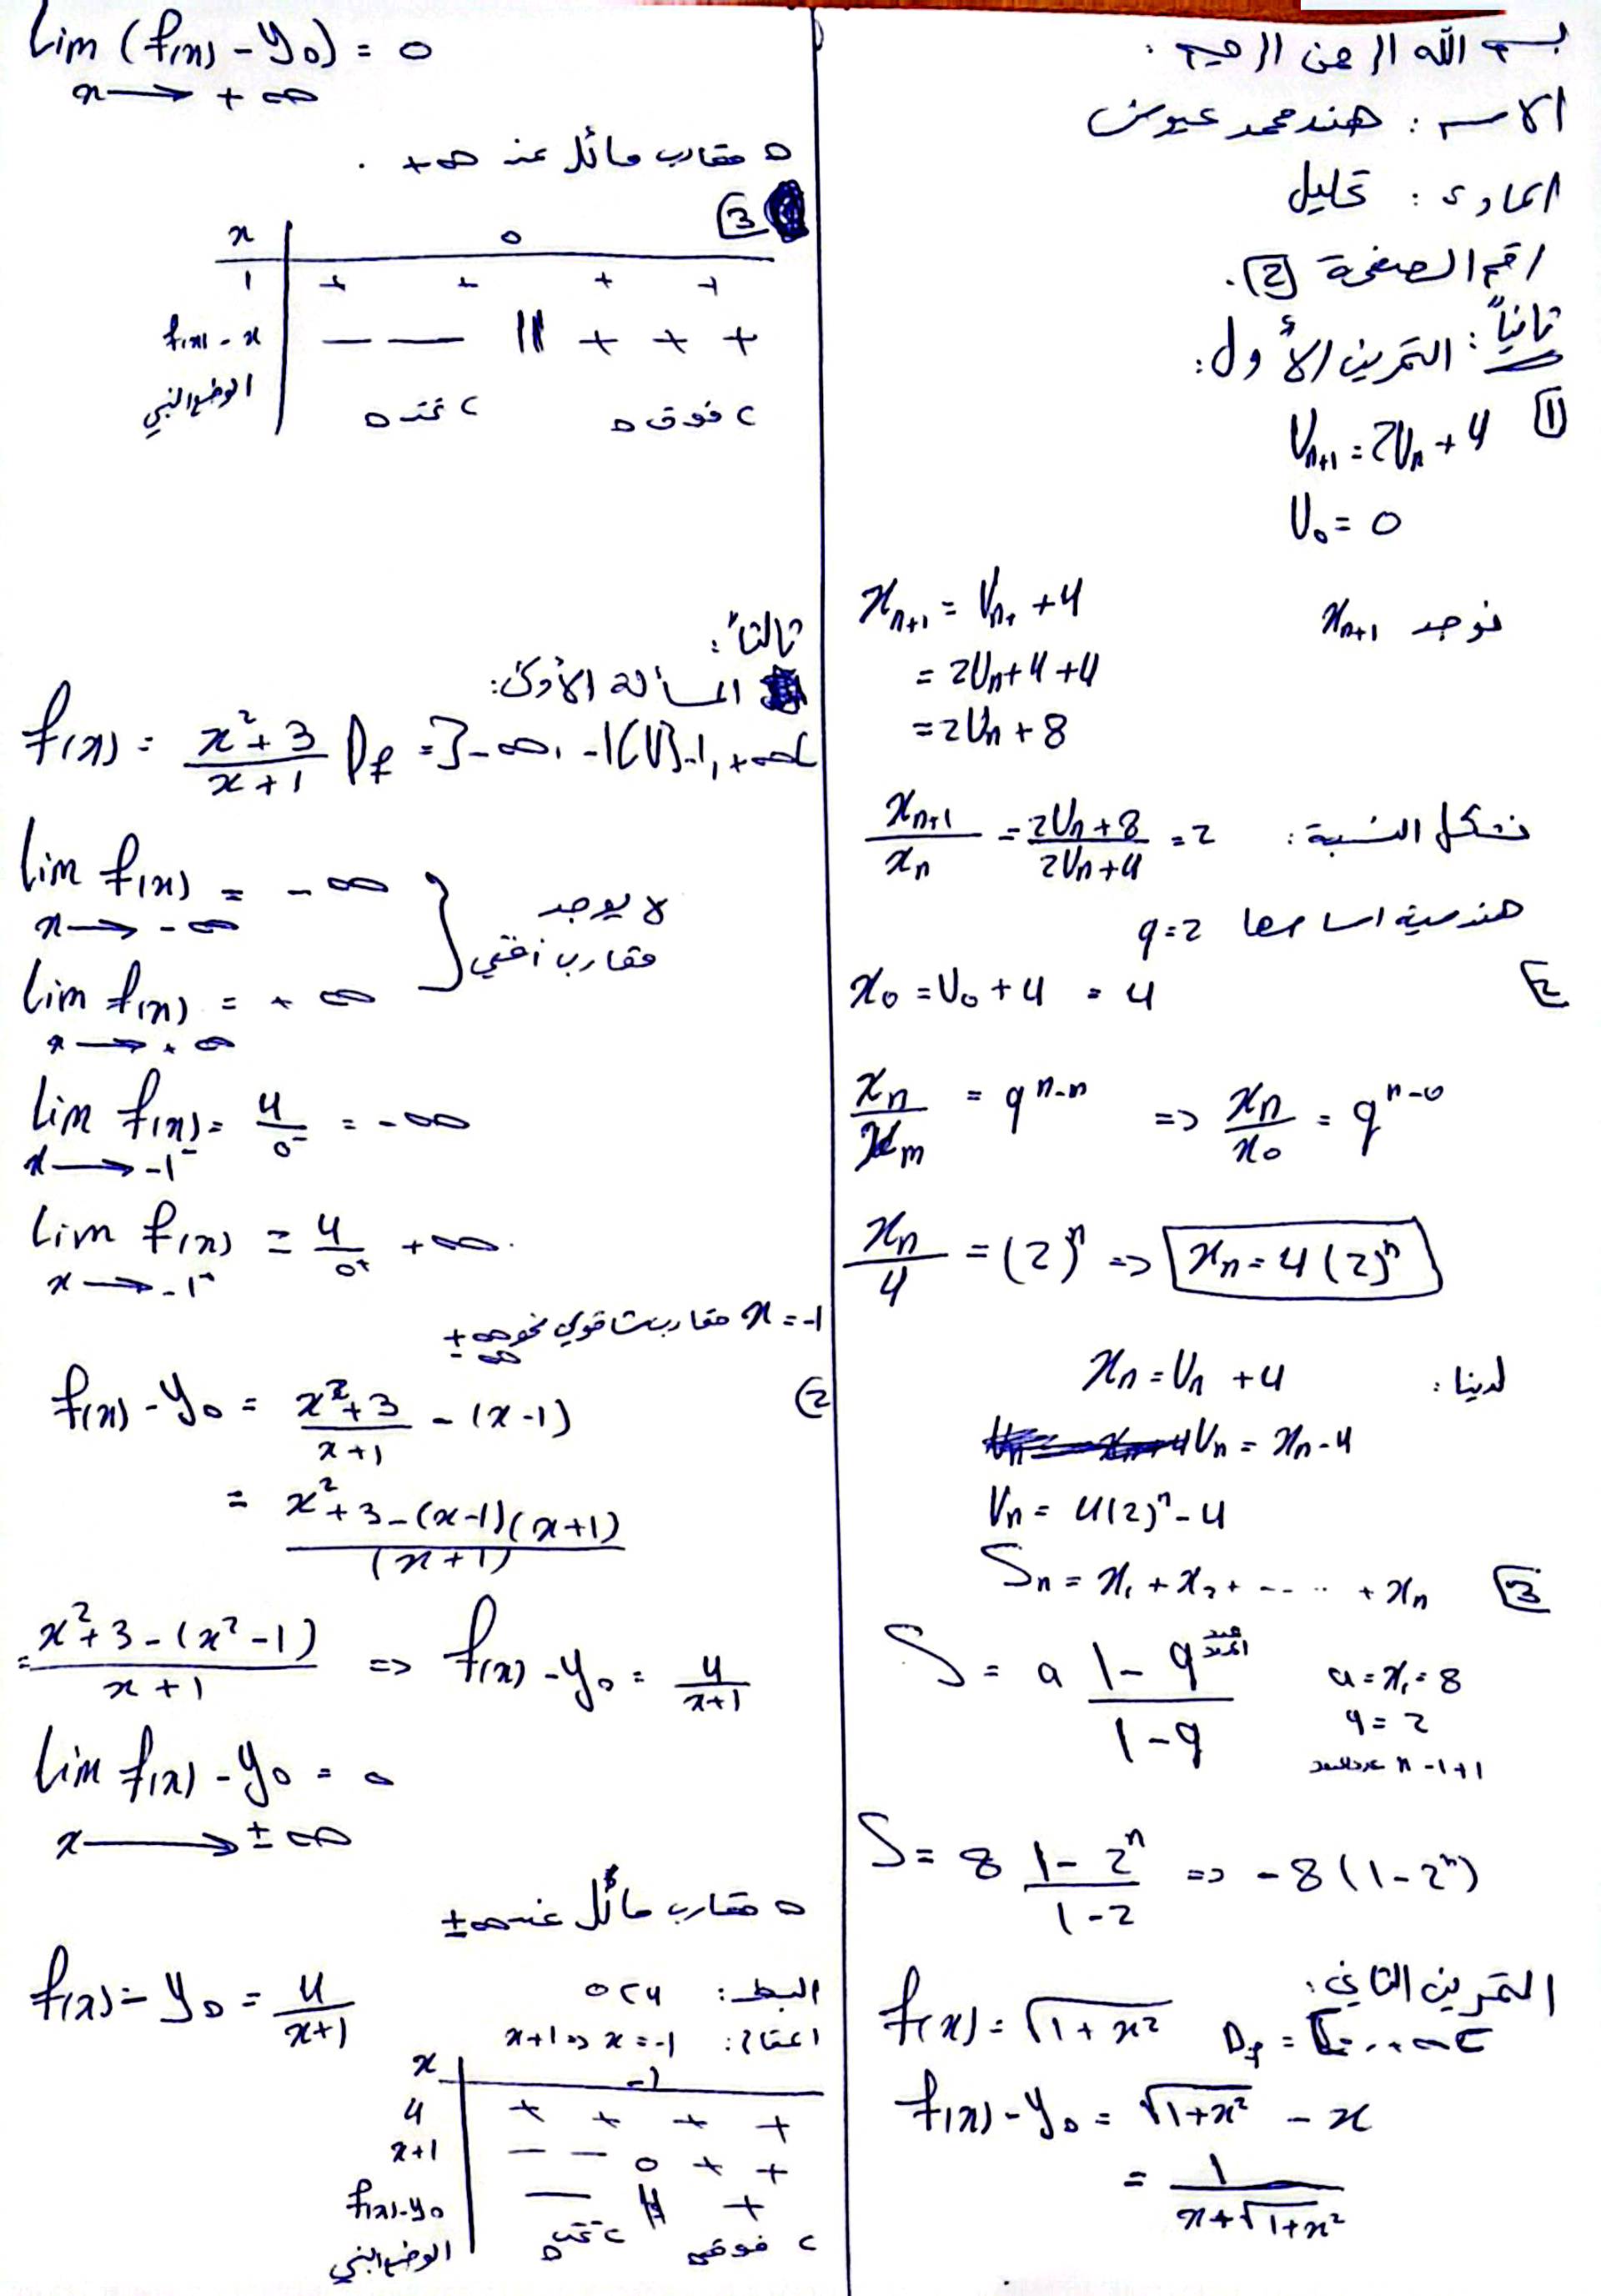 بسم الله الرحمن الرحيم .
الاسم : هند محمد عيوش
المادة : تحليل
رقم الصفحة [2].
ثانياً : التمرين الأول :
[1]
U_{n+1} = 2U_n + 4
U_0 = 0
نوجد x_{n+1}
x_{n+1} = U_{n+} + 4
= 2U_n + 4 + 4
= 2U_n + 8
نشكل النسبة : x_{n+1}/x_n = (2U_n + 8)/(2U_n + 4) = 2
هندسية اساسها q = 2
[2] x_0 = U_0 + 4 = 4
x_n/x_m = q^{n-m} => x_n/x_0 = q^{n-0}
x_n/4 = (2)^n => x_n = 4(2)^n
لدينا : x_n = U_n + 4
U_n = x_n - 4
U_n = 4(2)^n - 4
[3] S_n = x_1 + x_2 + ----.. + x_n
S = a (1 - q^{عدد الحدود})/(1 - q)
a = x_1 = 8
q = 2
n - 1 + 1 عدد الحدود
S = 8 (1 - 2^n)/(1 - 2) => -8(1 - 2^n)
التمرين الثاني :
f(x) = √(1 + x²) D_f =
f(x) - y_Δ = √(1+x²) - x
= 1/(x + √(1+x²))
lim (f(x) - y_Δ) = 0
x → +∞
Δ مقارب مائل عند +∞ .
[3]
x 0
1 + + + +
f(x) - x — — || + + +
الوضع النسبي C تحت Δ C فوق Δ
ثالثاً :
المسألة الأولى :
f(x) = (x² + 3)/(x + 1) D_f = ]-∞, -1[ U ]-1, +∞[
lim f(x) = -∞
x → -∞
لا يوجد
مقارب أفقي
lim f(x) = +∞
x → +∞
lim f(x) = 4/0⁻ = -∞
x → -1⁻
lim f(x) = 4/0⁺ +∞.
x → -1⁺
x = -1 مقارب شاقولي نحو ±∞
(2) f(x) - y_Δ = (x² + 3)/(x + 1) - (x - 1)
= (x² + 3 - (x-1)(x+1))/(x+1)
= (x² + 3 - (x² - 1))/(x + 1) => f(x) - y_Δ = 4/(x+1)
lim f(x) - y_Δ = 0
x → ±∞
Δ مقارب مائل عند ±∞
f(x) - y_Δ = 4/(x+1)
البسط : 4 > 0
المقام : x+1 => x = -1
x -1
4 + + + +
x+1 — — 0 + +
f(x)-y_Δ — || +
الوضع النسبي C تحت Δ C فوق